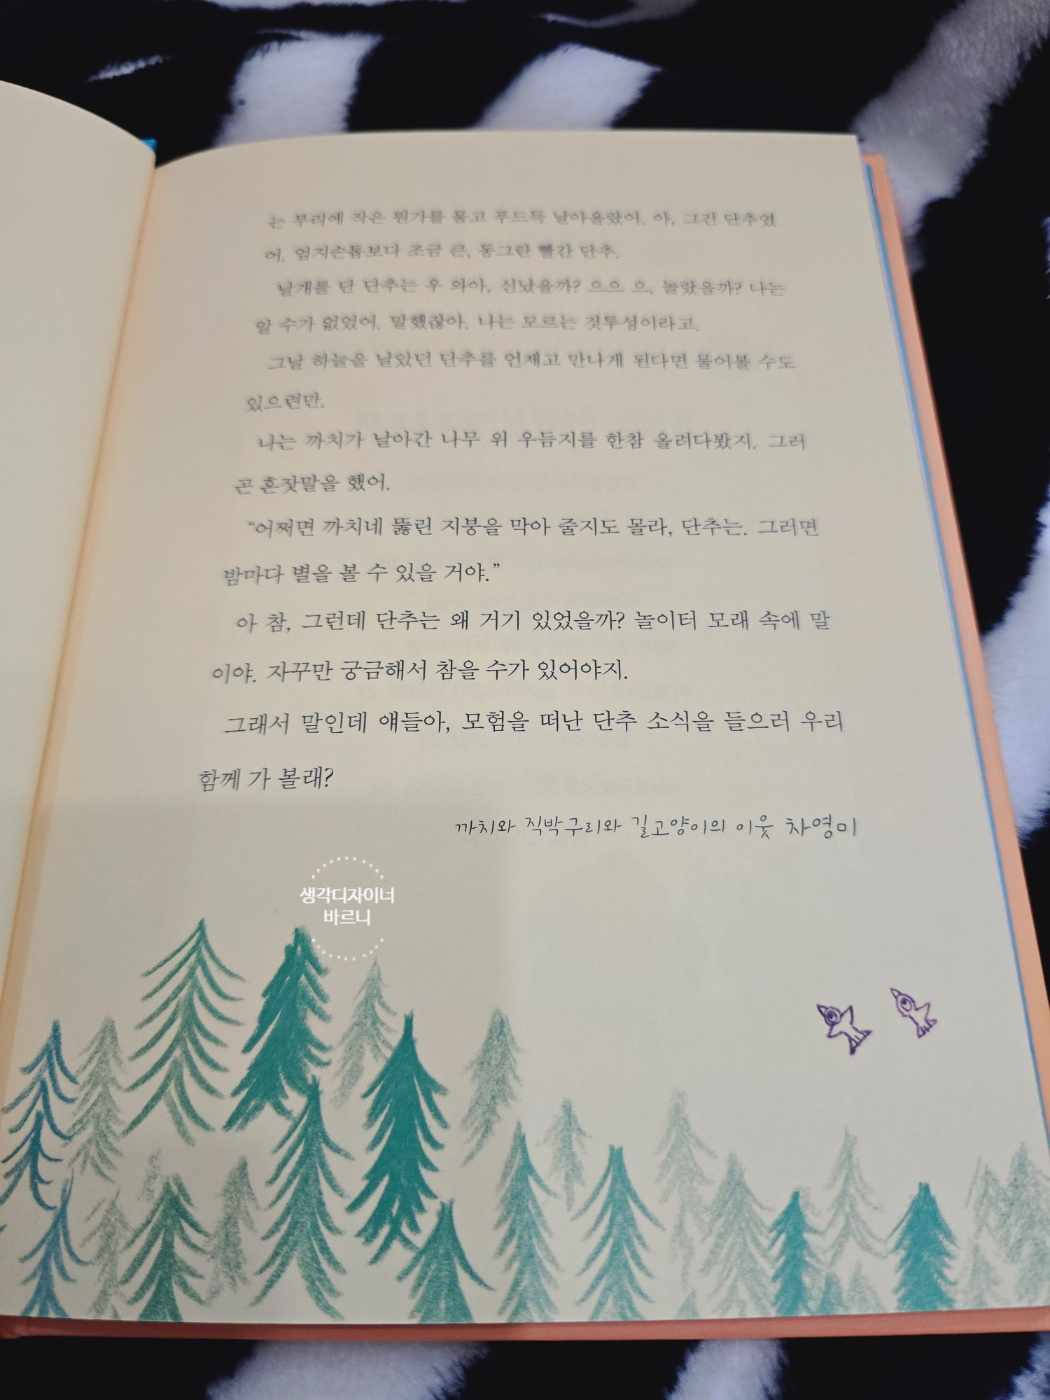 는 부리에 작은 뭔가를 물고 푸드득 날아올랐어. 아, 그건 단추였
어. 엄지손톱보다 조금 큰, 동그란 빨간 단추.
날개를 단 단추는 우 와아, 신났을까? 으으 으, 놀랐을까? 나는
알 수가 없었어. 말했잖아. 나는 모르는 것투성이라고.
그날 하늘을 날았던 단추를 언제고 만나게 된다면 물어볼 수도
있으련만.
나는 까치가 날아간 나무 위 우듬지를 한참 올려다봤지. 그러
곤 혼잣말을 했어.
“어쩌면 까치네 뚫린 지붕을 막아 줄지도 몰라, 단추는. 그러면
밤마다 별을 볼 수 있을 거야.”
아 참, 그런데 단추는 왜 거기 있었을까? 놀이터 모래 속에 말
이야. 자꾸만 궁금해서 참을 수가 있어야지.
그래서 말인데 얘들아, 모험을 떠난 단추 소식을 들으러 우리
함께 가 볼래?
까치와 직박구리와 길고양이의 이웃 차영미
생각디자이너
바르니